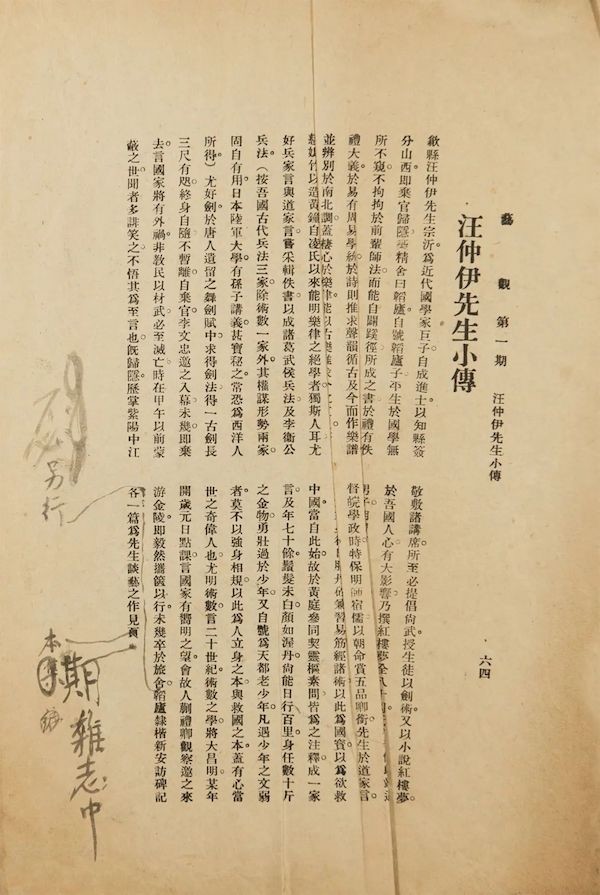 藝觀第一期　汪仲伊先生小傳
六四
汪仲伊先生小傳
歙縣汪仲伊先生宗沂。爲近代國學家巨子。自成進士以知縣簽
分山西。即棄官歸隱。精舍曰韜廬。自號韜廬子。平生於國學無
所不窺。不拘拘於前輩師法。而能自闢蹊徑。所成之書。於禮有佚
禮大義。於易有周易學統。於詩則推求聲韻。循古及今。而作樂譜
並辨別於南北調。蓋棲心於樂律。能以古樂
竹以造黃鐘。自凌氏以來能明樂律之絕學者。獨斯人耳。尤
好兵家言與道家言。嘗采輯佚書。以成諸葛武侯兵法及李衛公
兵法（按吾國古代兵法三家。除術數一家外。其權謀形勢兩家
固自有用。日本陸軍大學。有孫子講義。甚寶秘之。常恐爲西洋人
所得）尤好劍。於唐人遺留之舞劍賦中。求得劍法。得一古劍長
三尺有咫。終身自隨不暫離。自棄官。李文忠邀之入幕。未幾即棄
去。言國家將有外禍。非教民以材武。必至滅亡。時在甲午以前。蒙
蔽之世。聞者多誹笑之。不悟其爲至言也。旣歸隱。歷掌紫陽中江
敬敷諸講席。所至必提倡尙武。授生徒以劍術。又以小說紅樓夢。
於吾國人心有大影響。乃撰紅樓夢
督皖學政時。特保明師宿儒。以朝命賞五品卿銜。先生於道家言
習易筋經諸術。以此爲國寶。以爲欲救
中國。當自此始。故於黃庭參同契靈樞素問。皆爲之注釋。成一家
言。及年七十餘。鬚髮未白。顏如渥丹。尙能日行百里。身任數十斤
之金物。勇壯過於少年。又自號爲天都老少年。凡遇少年之文弱
者。莫不以強身相規。以此爲人立身之本。與救國之本。蓋有心當
世之奇偉人也。尤明術數。言二十世紀術數之學將大昌明。某年
開歲元日點課。言國家有嚮明之望。會故人蒯禮卿觀察邀之來
游金陵。即毅然攜篋以行。未幾卒於旅舍。韜廬隸楷新安訪碑記
各一篇。爲先生談藝之作。見
另行
本
期雜志中